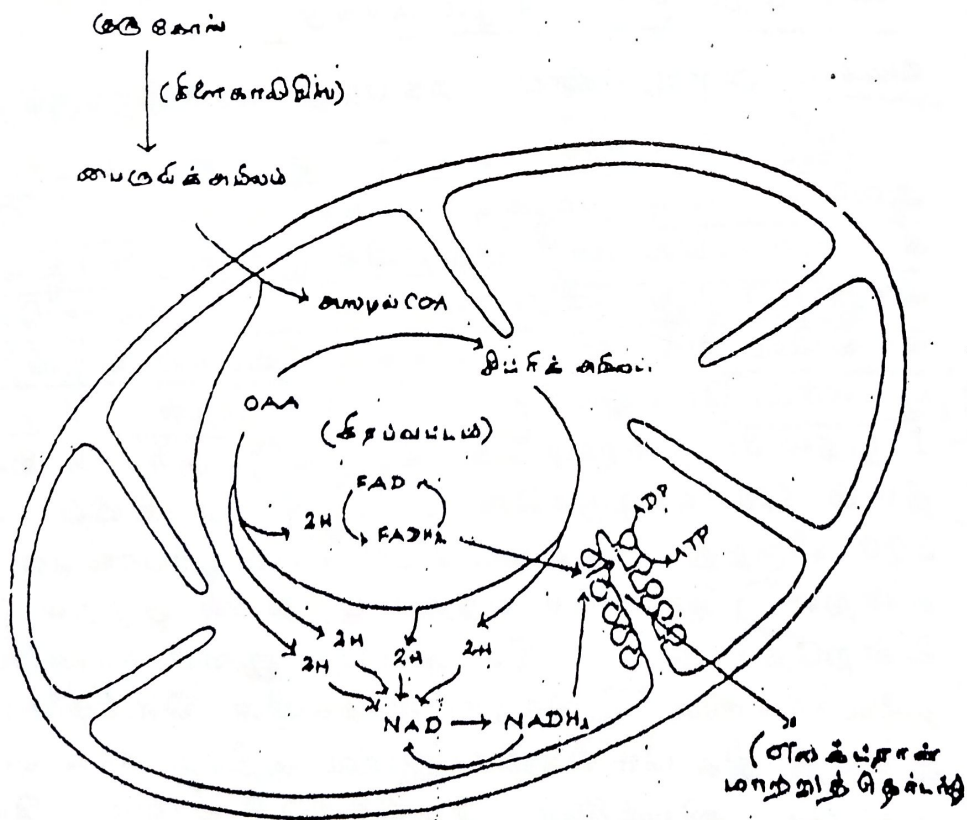 குளுகோஸ்
(கிளைகாலிஸிஸ்)
பைருவிக் அமிலம்
அஸடில் COA
சிட்ரிக் அமிலம்
OAA
(கிரப்வட்டம்)
FAD
2H
FADH₂
ADP
ATP
2H
2H
2H
2H
NAD
NADH₂
(எலக்ட்ரான்
மாற்றுத் தொடர்)